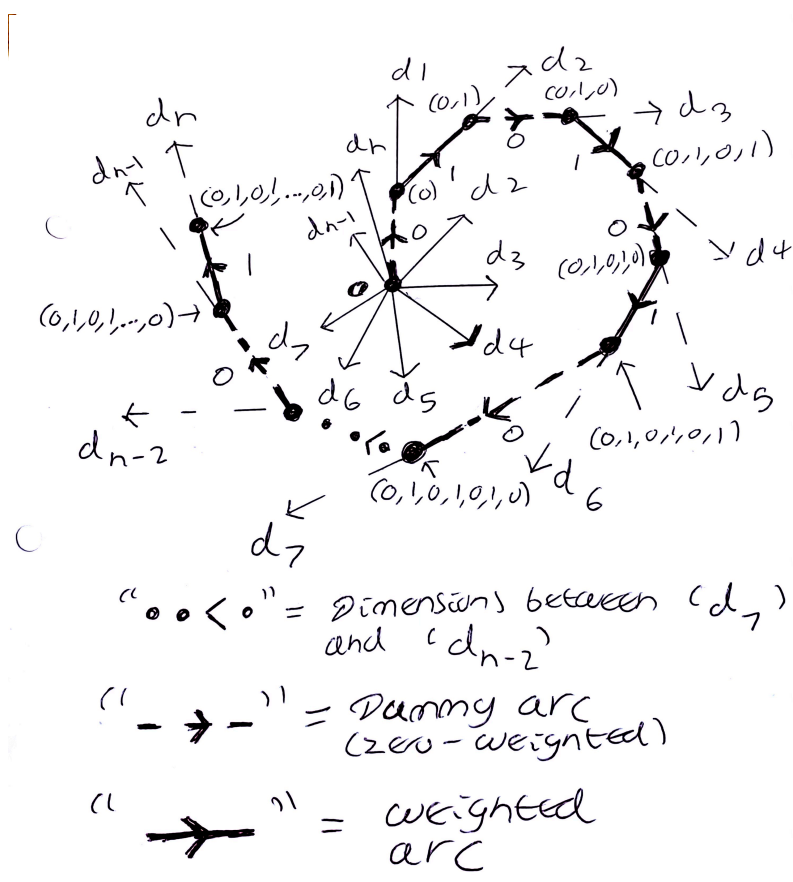 d1
d2
(0,1)
(0,1,0)
d3
dn
dn-1
(0,1,0,1,...,0,1)
dn
(0)
1
0
1
(0,1,0,1)
d2
dn-1
0
0
d4
d3
(0,1,0,1,0)
0
1
1
(0,1,0,1,...,0)
d7
d4
0
d6
d5
d5
dn-2
0
(0,1,0,1,0,1)
(0,1,0,1,0,1,0)
d6
d7
"••<•" = Dimensions between 'd7'
and 'dn-2'
"- → -" = Dummy arc
(zero-weighted)
"→" = weighted
arc